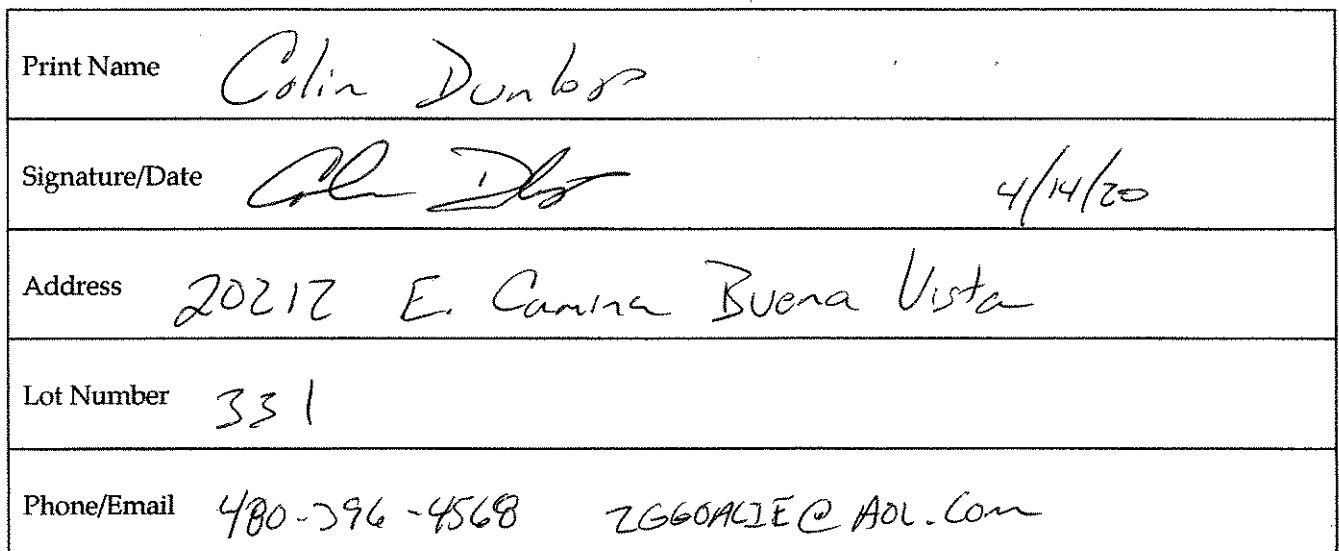 Print Name Colin Dunlop
Signature/Date Colin Dlop 4/14/20
Address 20212 E. Camina Buena Vista
Lot Number 331
Phone/Email 480-396-4568 2GGOALIE@AOL.Com